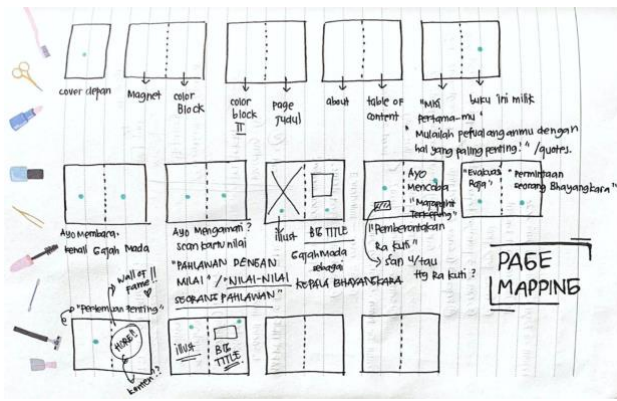 cover depan
Magnet
color
Block
color
block
II
page
judul
about
table of
content
"Misi
pertama-mu"
buku ini milik
"Mulailah petualanganmu dengan
hal yang paling penting!" /quotes.
Ayo Membaca.
kenali Gajah Mada
Ayo Mengamati?
scan kartu nilai
"PAHLAWAN DENGAN
NILAI" / "NILAI-NILAI
SEORANG PAHLAWAN"
illust
BIG TITLE
Gajah Mada
sebagai
KEPALA BHAYANGKARA
AYO
Mencoba
"Majapahit
Terkepung"
"Pemberontakan
Ra Kuti"
scan u/ tau
ttg Ra Kuti?
"Evakuasi
Raja"
"Permintaan
seorang Bhayangkara"
PAGE
MAPPING
wall of
fame!!
"Pertemuan Penting"
HORE!!
konten??
illust
BIG
TITLE